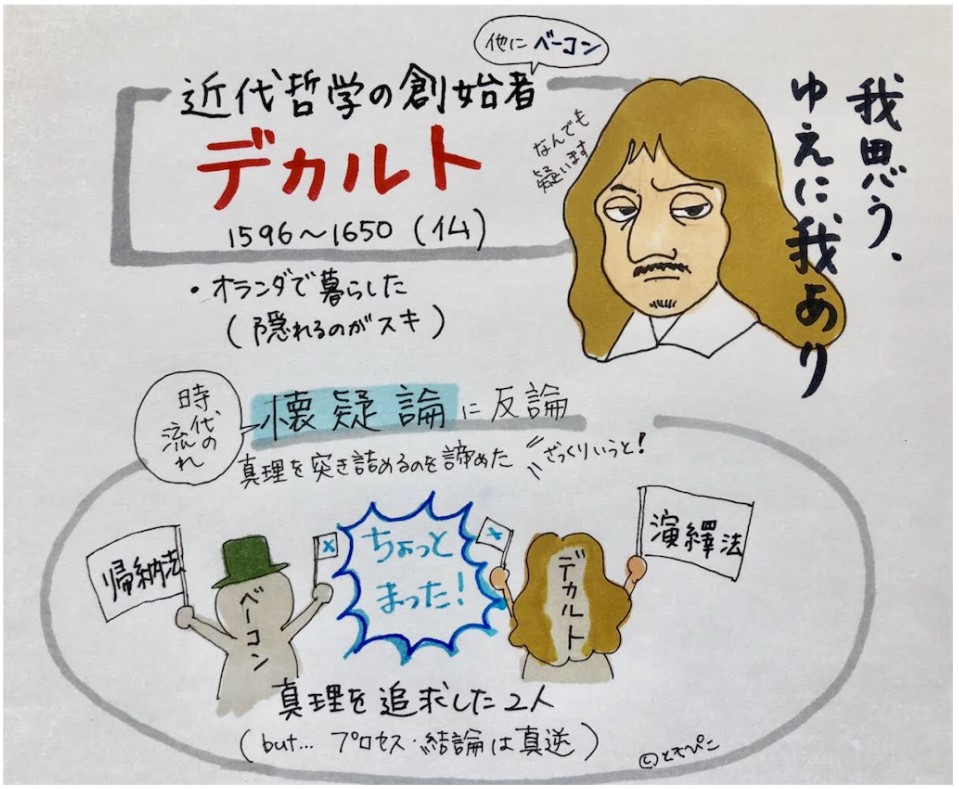 他にベーコン
近代哲学の創始者
デカルト
1596〜1650（仏）
なんでも
疑います
我思う、
ゆえに我あり
・オランダで暮らした
（隠れるのがスキ）
時代の
流れ
懐疑論に反論
真理を突き詰めるのを諦めた
ざっくりいうと！
帰納法
ベーコン
×
ちょっと
まった！
×
デカルト
演繹法
真理を追求した2人
（but... プロセス・結論は真逆）
©とさぴこ